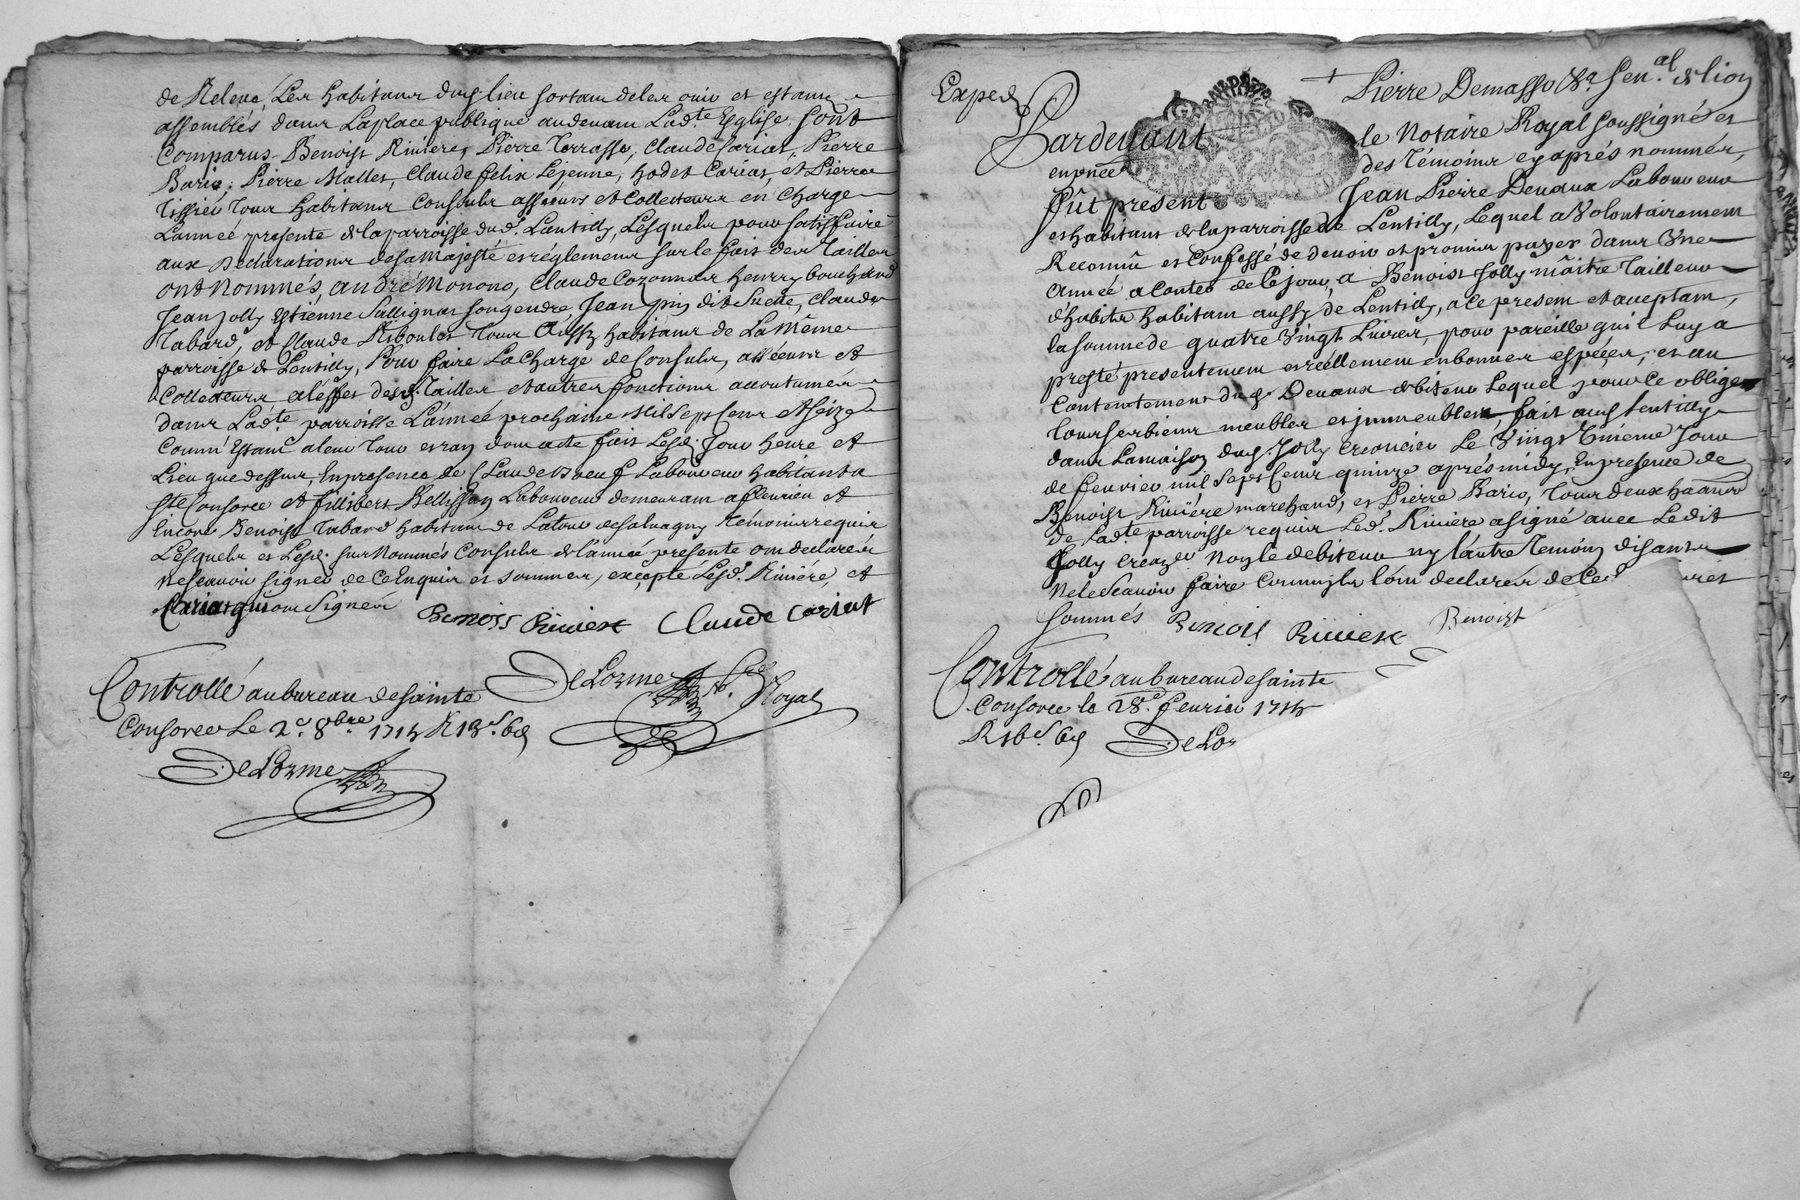 de Releve, Les habitans dud. lieu sortans de les ouir et estans
assemblés dans La place publique au devant Lad.te Eglise, sont
Comparus Benoist Riviere, Pierre Terrasse, Claude Cariat, Pierre
Baric, Pierre Mallet, Claude felix Lezenne, hodet Cariat, et Pierre
Tissier Tous habitans Consuls asseeurs et Collecteurs en Charge
L'année presente de la parroisse dud. Lantilly, Lesquels pour sattisfaire
aux Declarations de sa Majesté et réglemens sur le fait des Tailles
ont Nommés, andré Monono, Claude Cozonnat henrry bouchard
Jean Jolly Estienne Sallignat son gendre, Jean puy dit Suette, Claude
Tabard, et Claude Riboulet Tous Aussy habitans de La Même
parroisse de Lentilly, Pour faire La Charge de Consuls, asséeurs et
Collecteurs à l'effet desd. Tailles et autres fonctions accoutumées
dans Lad.te parroisse L'année prochaine Mil Sept Cens et Seize
Comm' Estant a leur Tour et ran dont acte fait Lesd. Jour heure et
Lieu que dessus, En presence de Claude Boeuf Laboureur habitant a
Ste Consorce et fillibert Bellissan Laboureur demeurant a fleurieu et
Encore Benoist Tabard habitant de Latour de Salvagny Témoins requis
Lesquels et Lesd. sus Nommés Consuls de l'année presente ont declarés
ne scavoir signer de ce Enquis et sommés, excepté Lesd. Riviére, et
Cariat qui ont Signés
Benois Riviere Claude Cariat
DeLorme No.re Royal
Controllé au bureau de sainte
Consorce Le 2e. 8bre 1715 R 13s. 6d
DeLorme
Exped
+ Pierre Demasso Sen.al de lion
Pardevant le Notaire Royal soussigné et
en pnce des Témoins cy aprés nommés,
fut present Jean Pierre Devaux Laboureur
et habitant de la parroisse de Lentilly, Lequel a Volontairement
Reconnû et Confessé de devoir et promis payer dans Une
Année a Conter de ce jour, a Benoist Jolly mâitre Tailleur
d'habits habitant aussy de Lentilly, a ce present et acceptant,
la somme de quatre Vingt Livres, pour pareille qu'il Luy a
presté presentement et réellement en bonnes espéces, et au
Contentement dud. Devaux debiteur Lequel pour ce oblige
Tous ses biens meubles et immeubles, fait aud. Lentilly
dans La maison dud. Jolly créancier Le Vingt Trieme Jour
de fevrier mil Sept Cens quinze aprés midy, En presence de
Benoist Riviére marchand, et Pierre Baric, Tous deux haans
de Lad.te parroisse requis Led. Riviére a signé avec Ledit
Jolly creanc.er Non le debiteur ny l'autre Temoin disants
ne le Scavoir faire Comm' ils l'ont declarés de ce
sommés Benois Riviere Benoist
Controllé au bureau de sainte
Consorce le 28e. fevrier 1715
R 16s. 6d DeLor